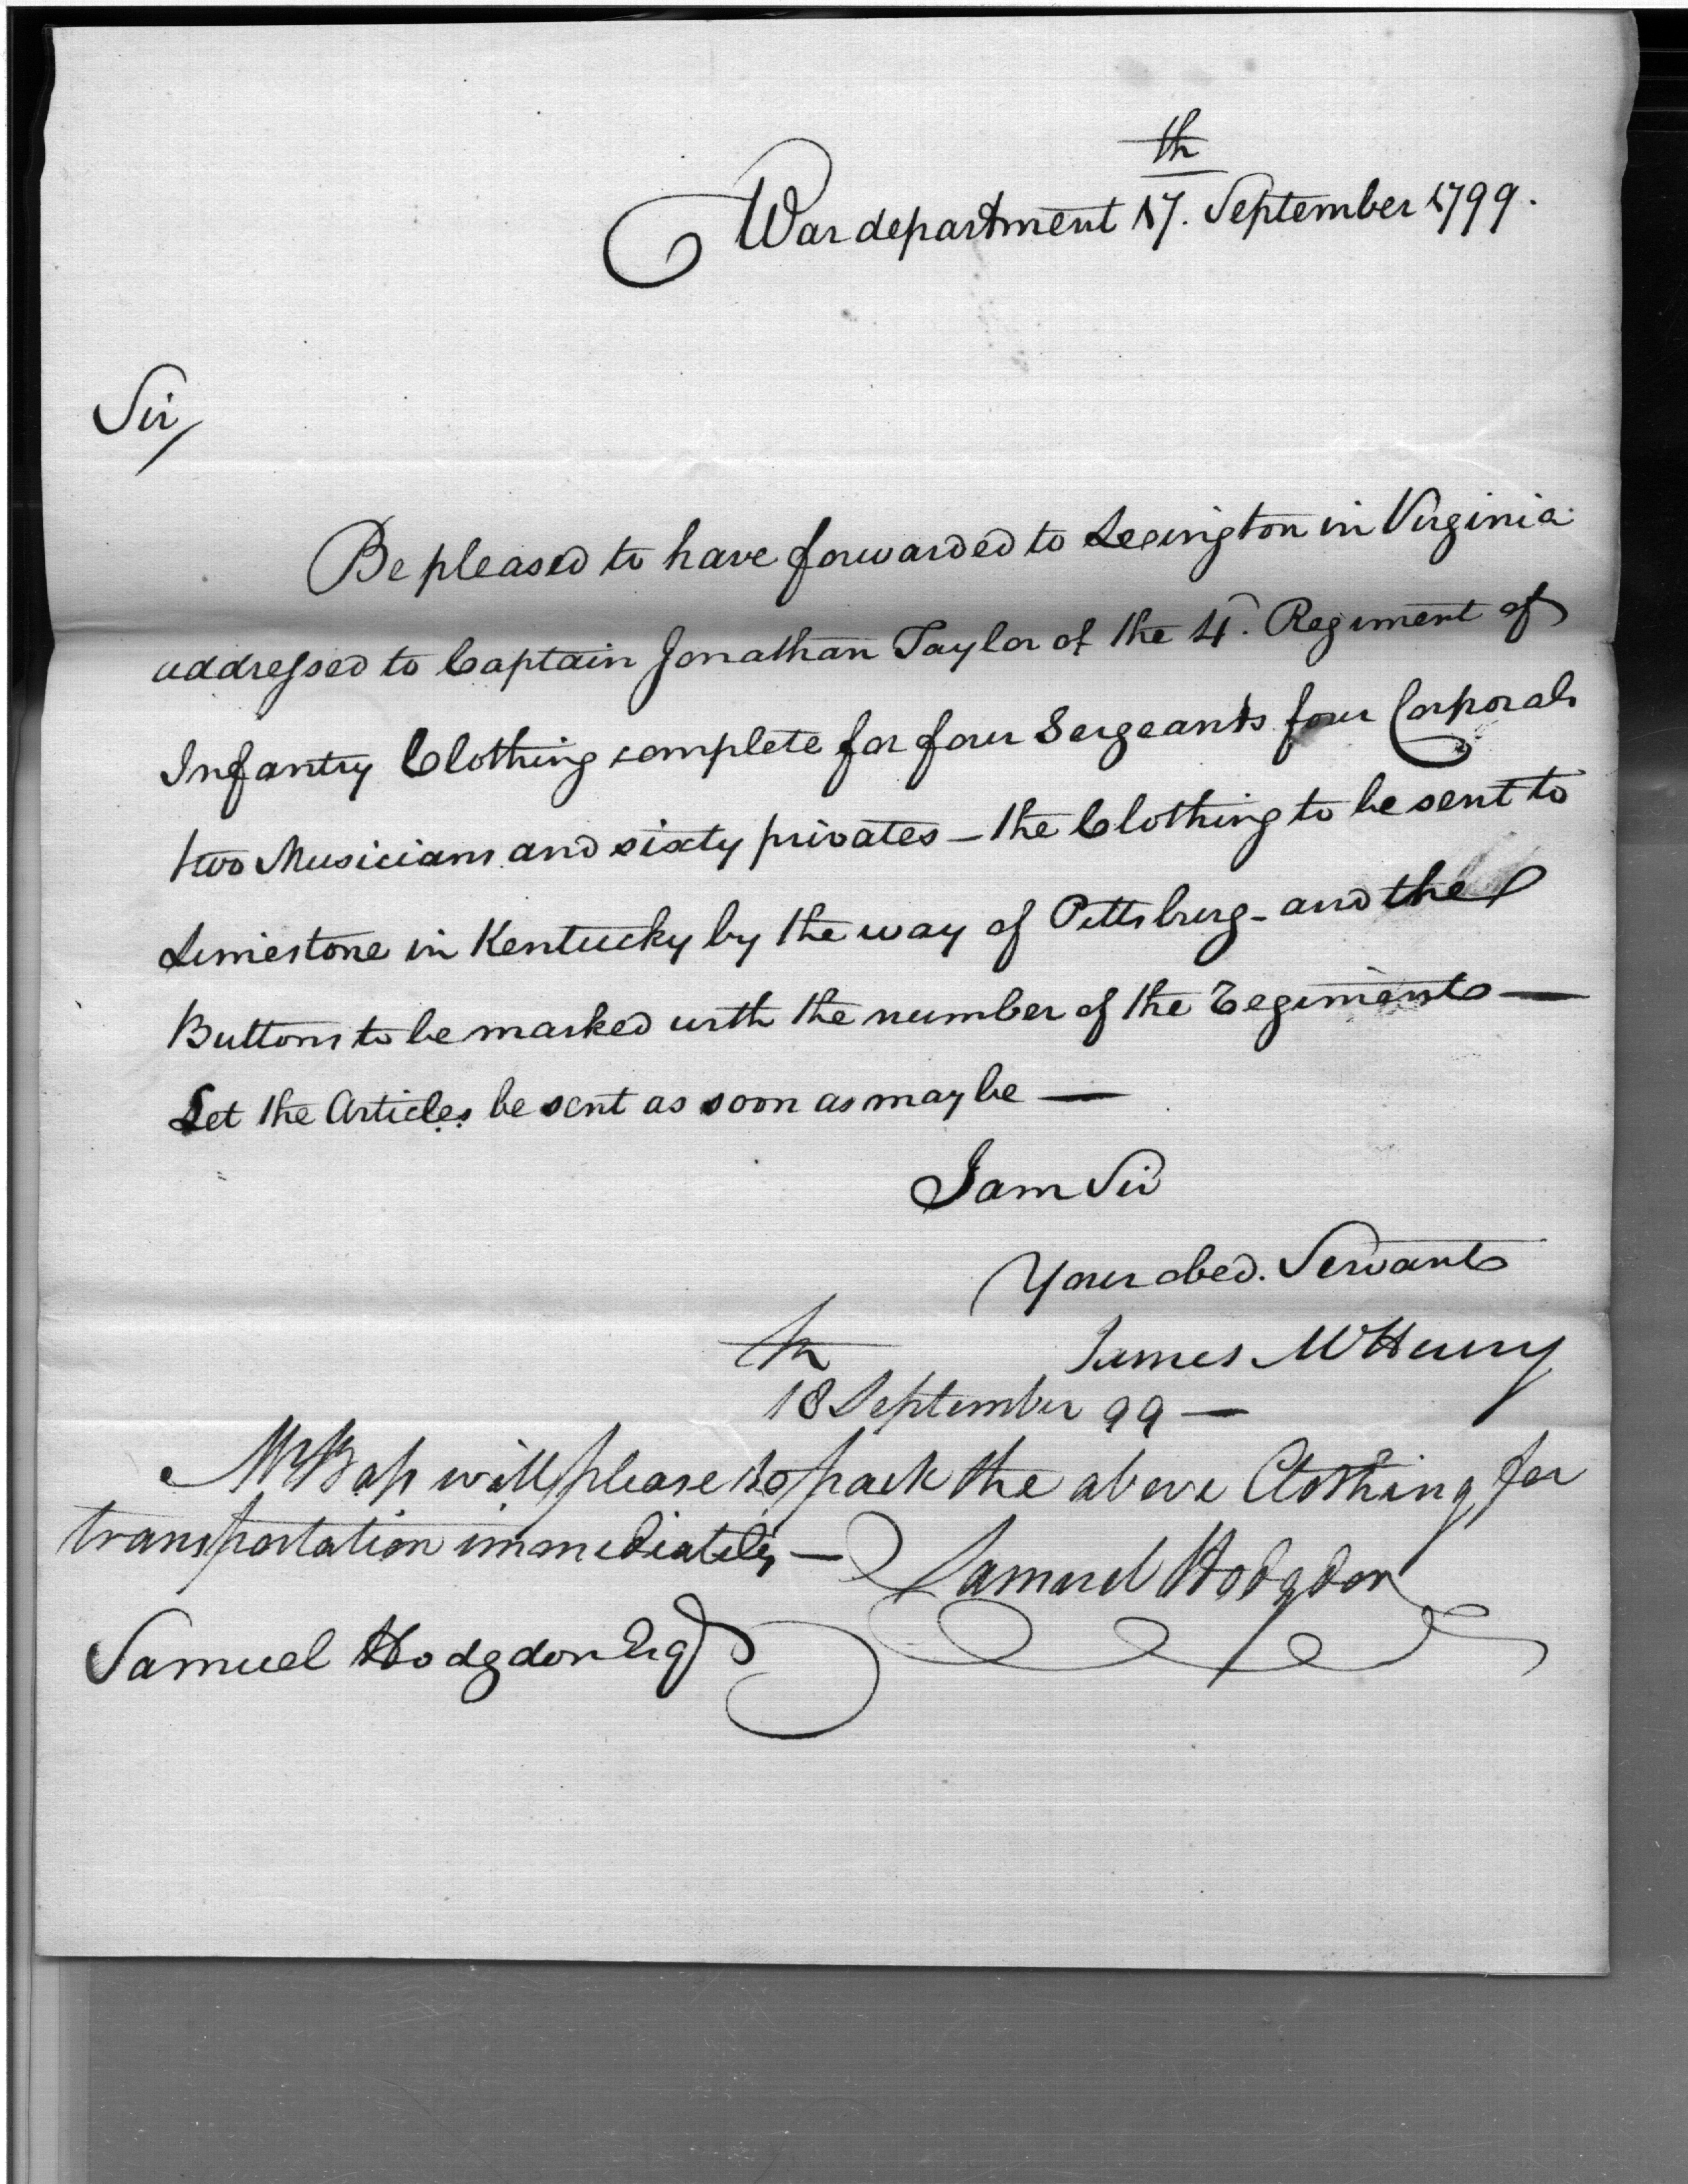 War department 17th. September 1799.
Sir/
Be pleased to have forwarded to Lexington in Virginia
addressed to Captain Jonathan Taylor of the 4. Regiment of
Infantry Clothing complete for four Sergeants four Corporals
two Musicians and sixty privates — the Clothing to be sent to
Limestone in Kentucky by the way of Pittsburg - and the
Buttons to be marked with the number of the Regiment —
Let the Articles be sent as soon as may be —
I am Sir
Your obed. Servant
James McHenry
18th September 99 —
Mr Bass will please to pack the above Clothing for
transportation immediately —
Samuel Hodgdon
Samuel Hodgdon Esqr